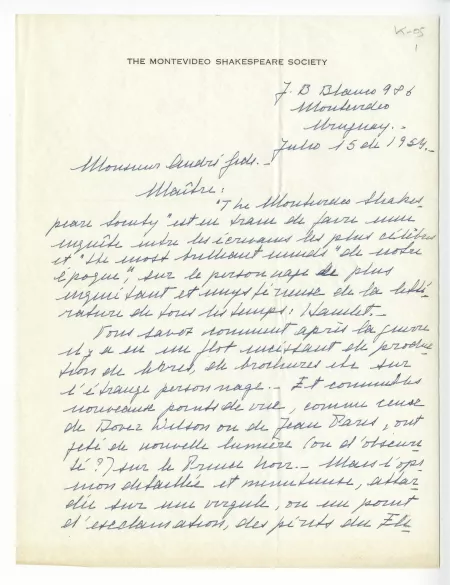 K-95
1
THE MONTEVIDEO SHAKESPEARE SOCIETY
J. B Blanco 986
Montevideo
Uruguay.-
Julio 15 de 1954.-
Monsieur André Gide.-
Maître:
"The Montevideo Shakes
peare Society" est en train de faire une
enquête entre les écrivains les plus célèbres
et "the most brilliant minds" de notre
époque", sur le personnage le plus
inquiétant et mystérieuse de la litté-
rature de tous les temps: Hamlet.-
Vous savez comment après la guerre
il y a eu un flot incessant de produc
tion de livres, de brochures etc sur
l'étrange personnage.- Et
nouveaux points de vue, comme ceux
de Dover Wilson ou de Jean Paris, ont
jeté de nouvelle lumière (ou d'obscuri
té?) sur le Prince Noir.- Mais l'opi
nion detaillée et minutieuse, attar
dée sur une virgule, ou un point
d'esclamation, des périts du